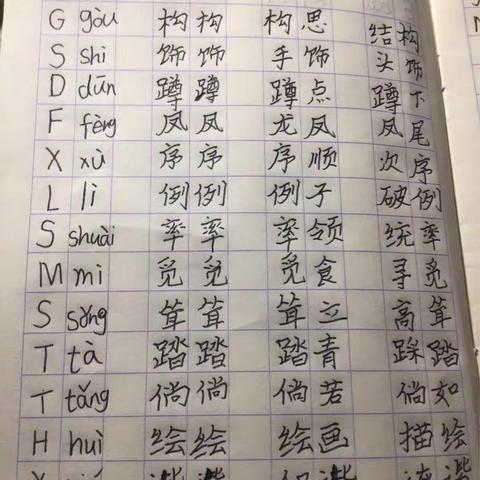 G gòu 构 构 构思 结构
S shì 饰 饰 手饰 头饰
D dūn 蹲 蹲 蹲点 蹲下
F fèng 凤 凤 龙凤 凤尾
X xù 序 序 序顺 次序
L lì 例 例 例子 破例
S shuài 率 率 率领 统率
M mì 觅 觅 觅食 寻觅
S sǒng 耸 耸 耸立 高耸
T tà 踏 踏 踏青 踩踏
T tǎng 倘 倘 倘若 倘如
H huì 绘 绘 绘画 描绘